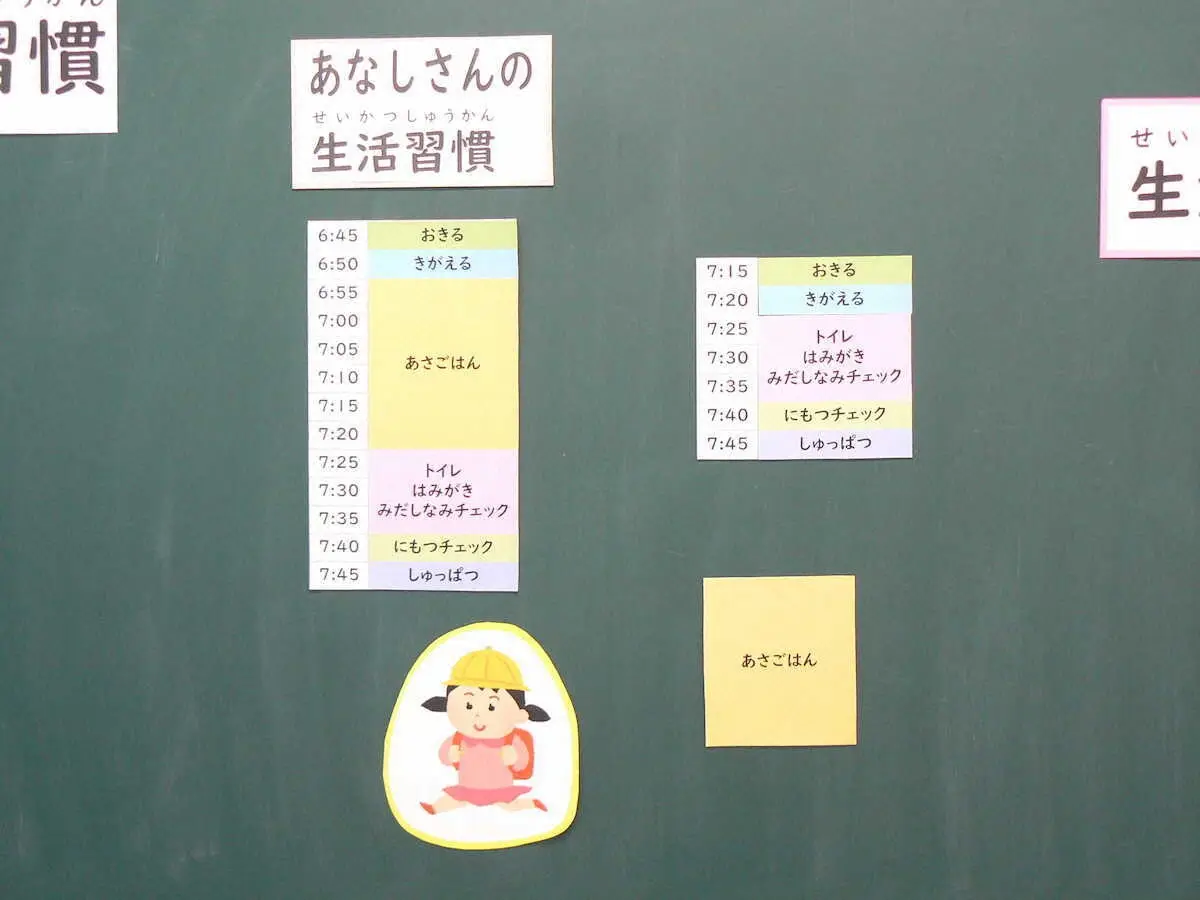 うかん
習慣
あなしさんの
せいかつしゅうかん
生活習慣
6:45 おきる
6:50 きがえる
6:55
7:00
7:05
7:10
7:15
7:20
あさごはん
7:25
7:30
7:35
トイレ
はみがき
みだしなみチェック
7:40 にもつチェック
7:45 しゅっぱつ
7:15 おきる
7:20 きがえる
7:25
7:30
7:35
トイレ
はみがき
みだしなみチェック
7:40 にもつチェック
7:45 しゅっぱつ
あさごはん
せい
生